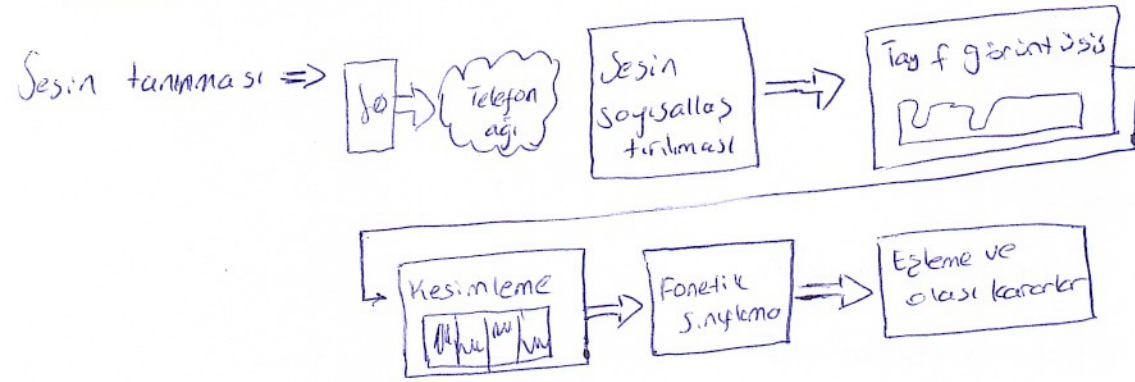 Sesin tanınması =>
Telefon
ağı
Sesin
sayısallaş
tırılması
Tayf görüntüsü
Kesimleme
Fonetik
sınıflama
Eşleme ve
olası kararlar